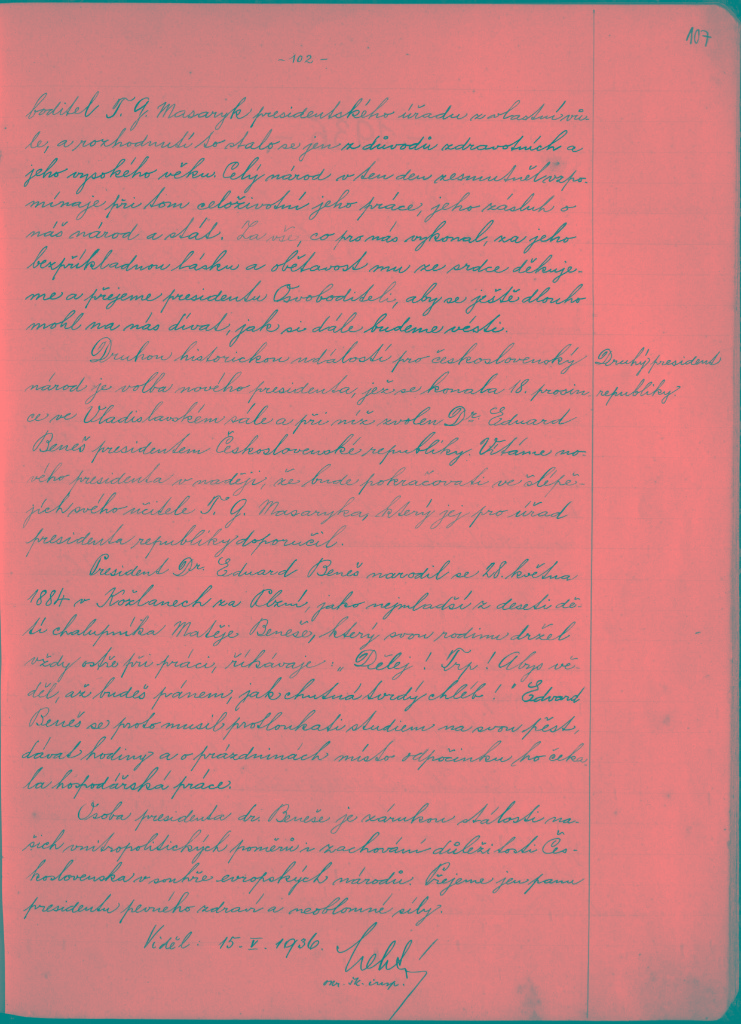 107
- 102 -
boditel T. G. Masaryk presidentského úřadu z vlastní vů-
le, a rozhodnutí to stalo se jen z důvodů zdravotních a
jeho vysokého věku. Celý národ v ten den zesmutněl, vzpo-
mínaje při tom celoživotní jeho práce, jeho zásluh o
náš národ a stát. Za vše, co pro nás vykonal, za jeho
bezpříkladnou lásku a obětavost mu ze srdce děkuje-
me a přejeme presidentu Osvoboditeli, aby se ještě dlouho
mohl na nás dívat, jak si dále budeme vésti.
Druhou historickou událostí pro československý
národ je volba nového presidenta, jež se konala 18. prosin
ce ve Vladislavském sále a při níž zvolen Dr. Eduard
Beneš presidentem Československé republiky. Vítáme no-
vého presidenta v naději, že bude pokračovati ve šlepě-
jích svého učitele T. G. Masaryka, který jej pro úřad
presidenta republiky doporučil.
Druhý president
republiky.
President Dr. Eduard Beneš narodil se 28. května
1884 v Kožlanech za Plzní, jako nejmladší z deseti dě-
tí chalupníka Matěje Beneše, který svou rodinu držel
vždy ostře při práci, říkávaje: „Dělej! Trp! Abys vě-
děl, až budeš pánem, jak chutná tvrdý chléb!" Edvard
Beneš se proto musil protloukati studiem na svou pěst,
dávat hodiny a o prázdninách místo odpočinku ho čeka-
la hospodářská práce.
Osoba presidenta dr. Beneše je zárukou stálosti na-
šich vnitropolitických poměrů i zachování důležitosti Čes-
koslovenska v souhře evropských národů. Přejeme jen panu
presidentu pevného zdraví a neoblomné síly.
Viděl: 15. V. 1936.
okr. šk. insp.